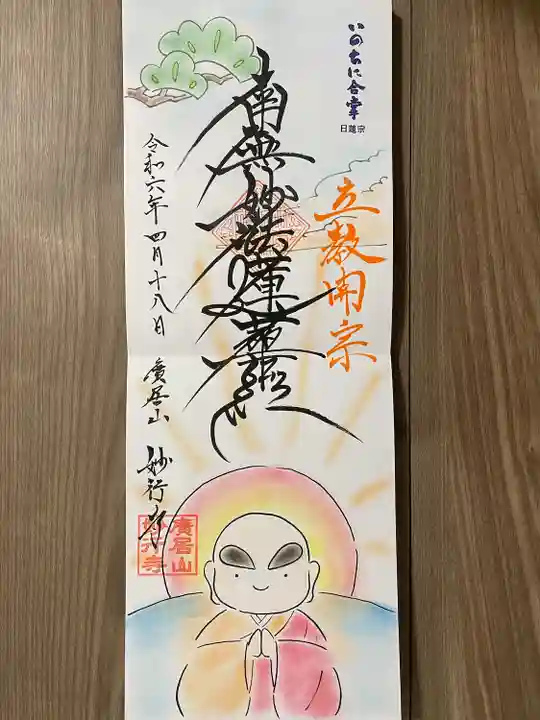 いのちに合掌
日蓮宗
立教開宗
南無妙法蓮華経
令和六年四月十八日
廣居山
妙行寺
廣居山
妙行寺